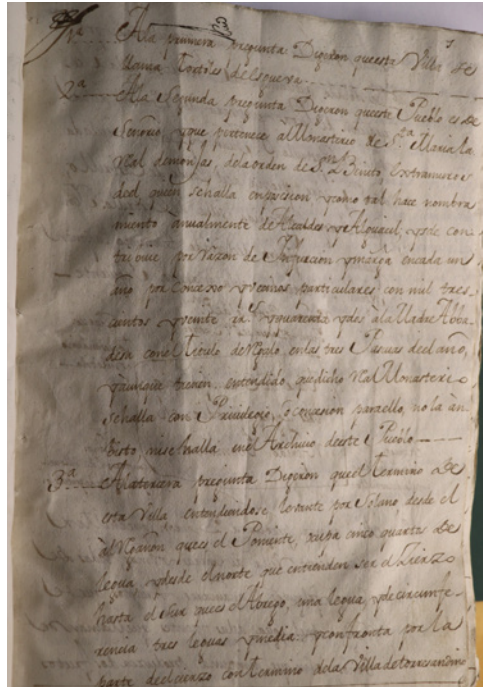 1ª A la primera pregunta Digeron que esta Villa se
llama Tortoles de Esgueva.
2ª A la Segunda pregunta Digeron que este Pueblo es de
Señorio, y que pertenece à el Monasterio de Sta. Maria la
Real de monjas, de la orden de Sn. Benito Extramuros
de el quien se halla en posesion y como tal hace nombra
miento ànualmente de Alcaldes y Alguacil, y se con
tribuie por razon de Infurcion y marga en cada un
año por Concexo y vecinos particulares con mil tres
cientos y veinte rs. y quarenta y dos à la Madre Abba
desa con el titulo de Regalo en las tres Pascuas de el año,
y aunque tienen entendido, que dicho Rl. Monasterio
se halla con Privilegio, o concesion para ello, no la àn
bisto, ni se halla en el Archivo de este Pueblo
3ª A la tercera pregunta Digeron que el termino de
esta Villa entendiendose, levante por Solano desde el
al Regañon que es el Poniente, ocupa cinco quartos de
legua, y desde el norte que entienden ser el Zierzo
hasta el Sur que es el Abrego, una legua y de circunfe
rencia tres leguas y media y confronta por la
parte de el cierzo con termino de la Villa de torresandino